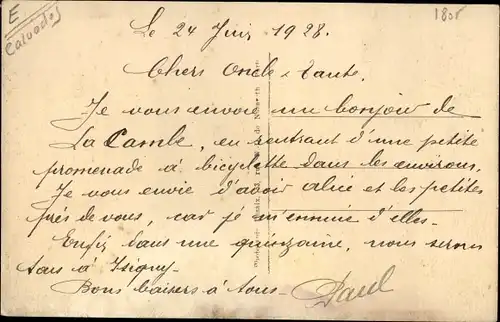 E
Calvados
180f
Le 24 Juin 1928.
Chers Oncle & Tante.
Je vous envoie un bonjour de
La Cambe, en rentrant d'une petite
promenade à bicyclette dans les environs,
Je vous envie d'avoir alice et les petites
près de vous, car je m'ennuie d'elles.
Enfin dans une quinzaine, nous serons
tous à Isigny.
Bons baisers à tous.
Paul